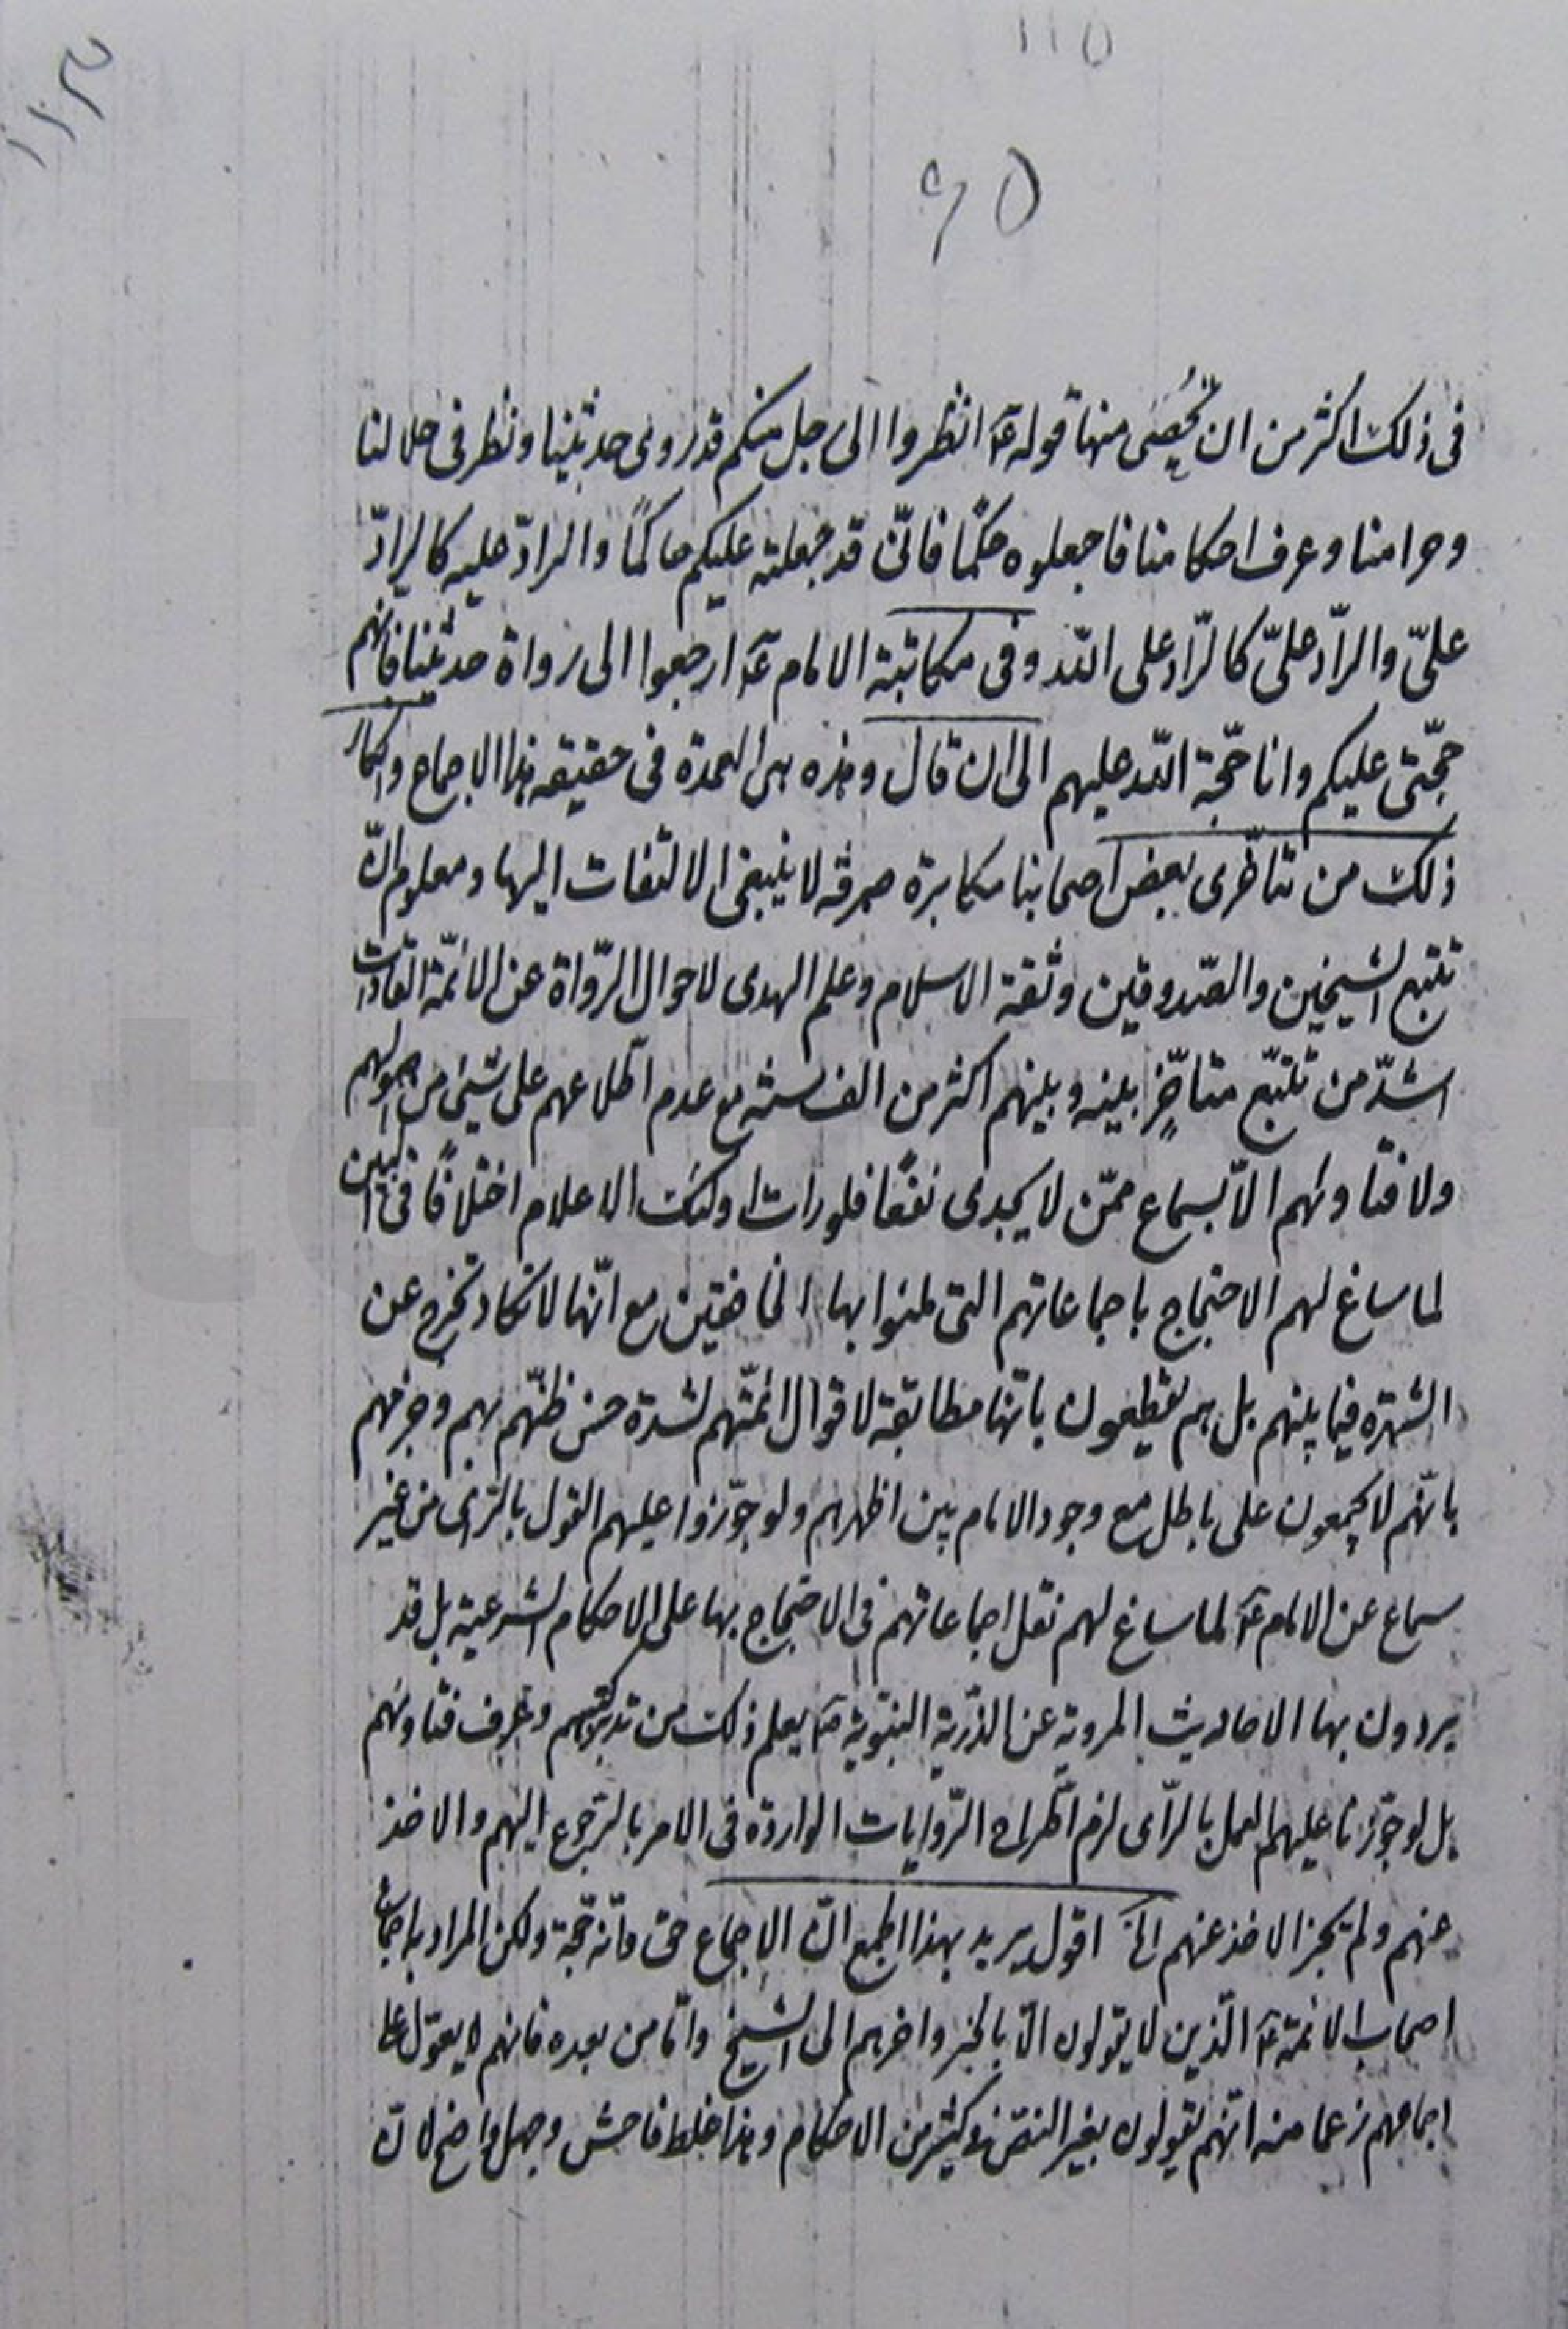 ١١٥
٦٥
فى ذلك اكثر من ان تحصى منها قوله ع‍ انظروا الى رجل منكم قد روى حديثنا ونظر فى حلالنا
وحرامنا وعرف احكامنا فاجعلوه حكمًا فانّى قد جعلته عليكم حاكمًا والرادّ عليه كالرادّ
علىّ والرادّ علىّ كالرّاد على اللّه وفى مكاتبة الامام ع‍ ارجعوا الى رواة حديثنا فانهم
حجّتى عليكم وانا حجّة اللّه عليهم الى ان قال وهذه هى العمدة فى حقيقة هذا الاجماع وانكار
ذلك من متاخّرى بعض اصحابنا مكابرة صرفة لا ينبغى الالتفات اليها ومعلوم انّ
تتبع الشيخين والصّدوقين وثقة الاسلام وعلم الهدى لاحوال الرّواة عن الائمّة الهداة
اشدّ من تتبّع متاخّر بينه وبينهم اكثر من الف سنة مع عدم اطّلاعهم على شيئ من اصولهم
ولا فتاويهم الّا بسماع ممّن لا يجدى نفعًا فلو رات اولئك الاعلام اختلافًا فى البين
لما ساغ لهم الاحتجاج باجماعاتهم التى ملئوا بها الخافقين مع انّها لا تكاد تخرج عن
الشهرة فيما بينهم بل هم يقطعون بانّها مطابقة لاقوال ائمّتهم لشدة حسن ظنّهم بهم وجزمهم
بانّهم لا يجمعون على باطل مع وجود الامام بين اظهرهم ولو جوّزوا عليهم القول بالرّاى من غير
سماع عن الامام ع‍ لما ساغ لهم نقل اجماعاتهم فى الاحتجاج بها على الاحكام الشرعية بل قد
يردون بها الاحاديث المروية عن الذرّية النبويّة كما يعلم ذلك من تدبر كتبهم وعرف فتاويهم
بل لو جوّزنا عليهم العمل بالرّاى لزم اطّراح الرّوايات الواردة فى الامر بالرّجوع اليهم والاخذ
عنهم ولم يجز الاخذ عنهم الخ اقول يريد بهذا الجمع انّ الاجماع حق وانّه حجة ولكن المراد به اجماع
اصحاب الائمة ع‍ الّذين لا يقولون الّا بالخبر واخرهم الى الشيخ وامّا من بعده فانهم لا يعوّل على
اجماعهم زعما منه انّهم يقولون بغير النصّ فى كثير من الاحكام وهذا غلط فاحش وجهل واضح لانّ